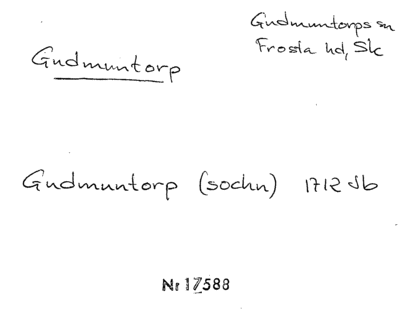 Gudmuntorps sn
Frosta hd, Sk
Gudmuntorp
Gudmuntorp (sochn) 1712 Jb
Nr 17588